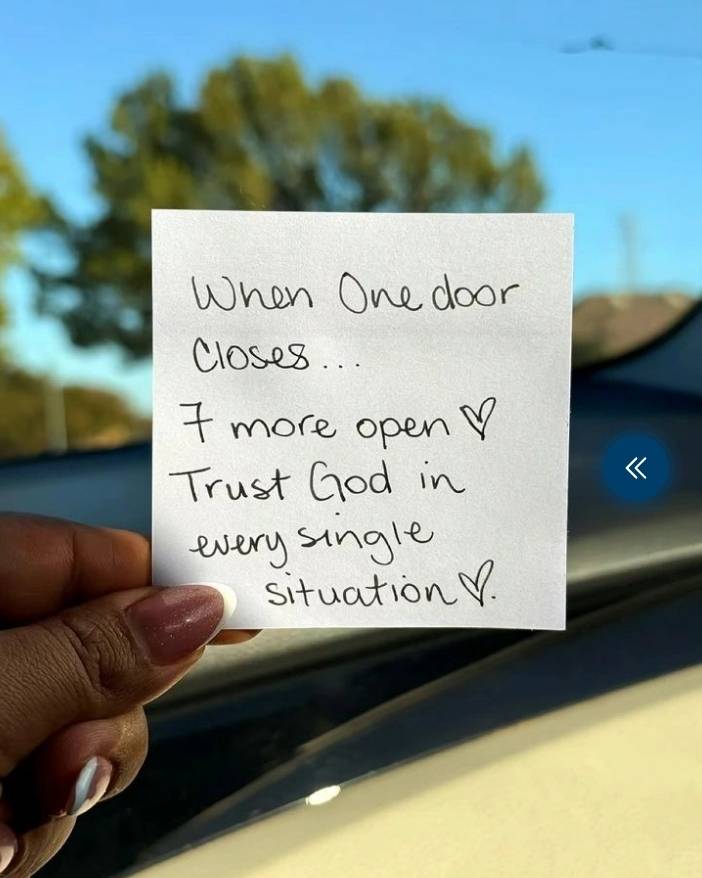 When One door
Closes...
7 more open ♡
Trust God in
every single
situation ♡.